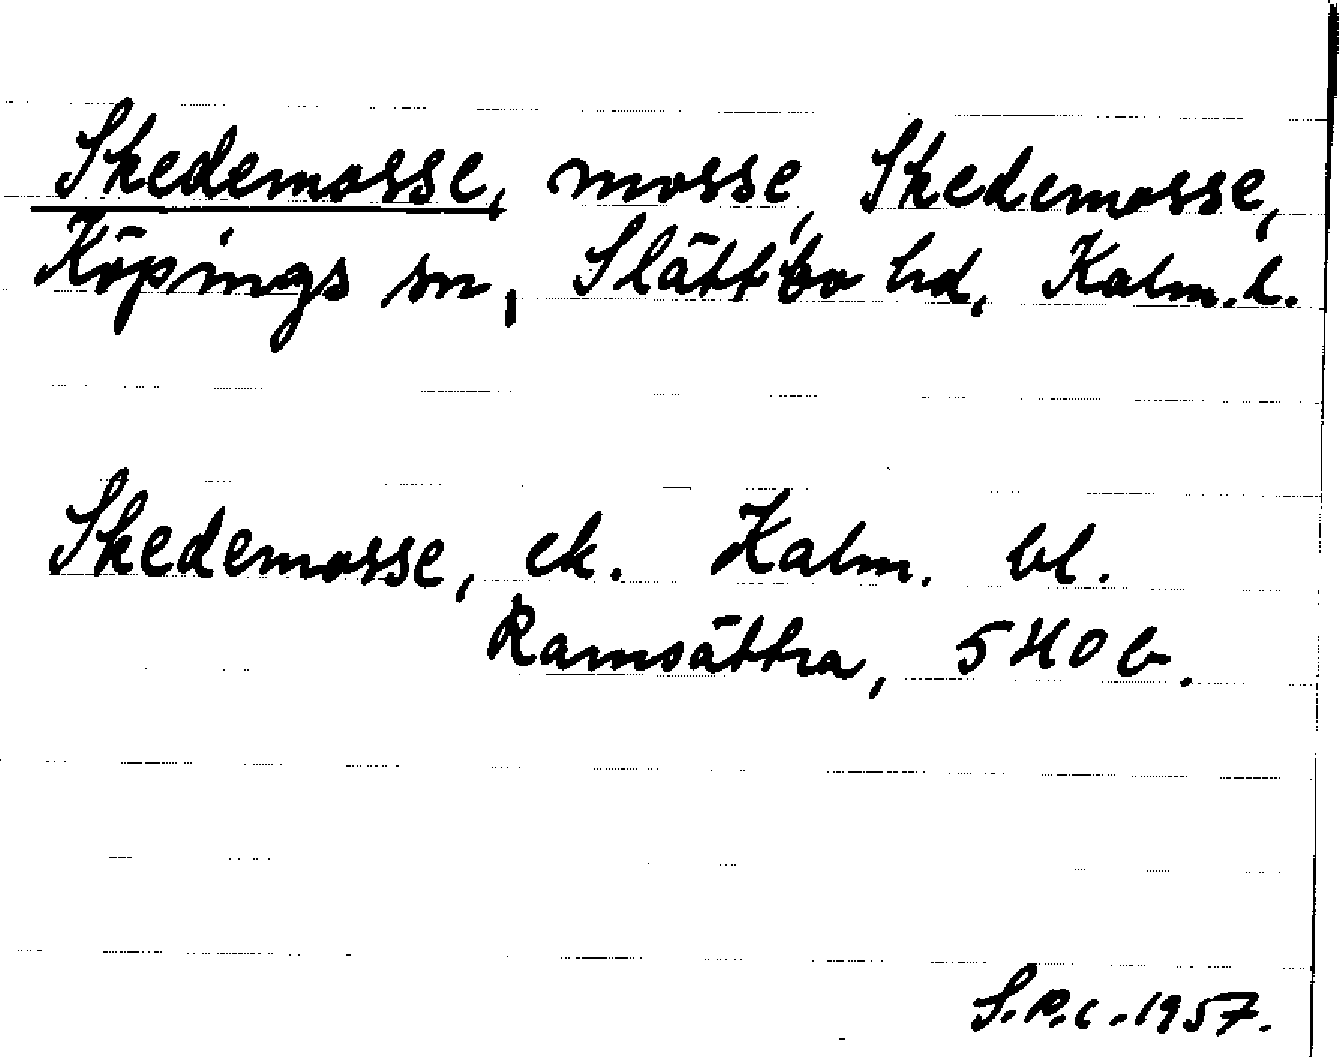 Skedemosse, mosse, Skedemosse,
Köpings sn, Slättbo hd, Kalm. l.
Skedemosse, ek. Kalm. bl.
Ramsättra, 5 H 0 b.
S.R.c. 1957.